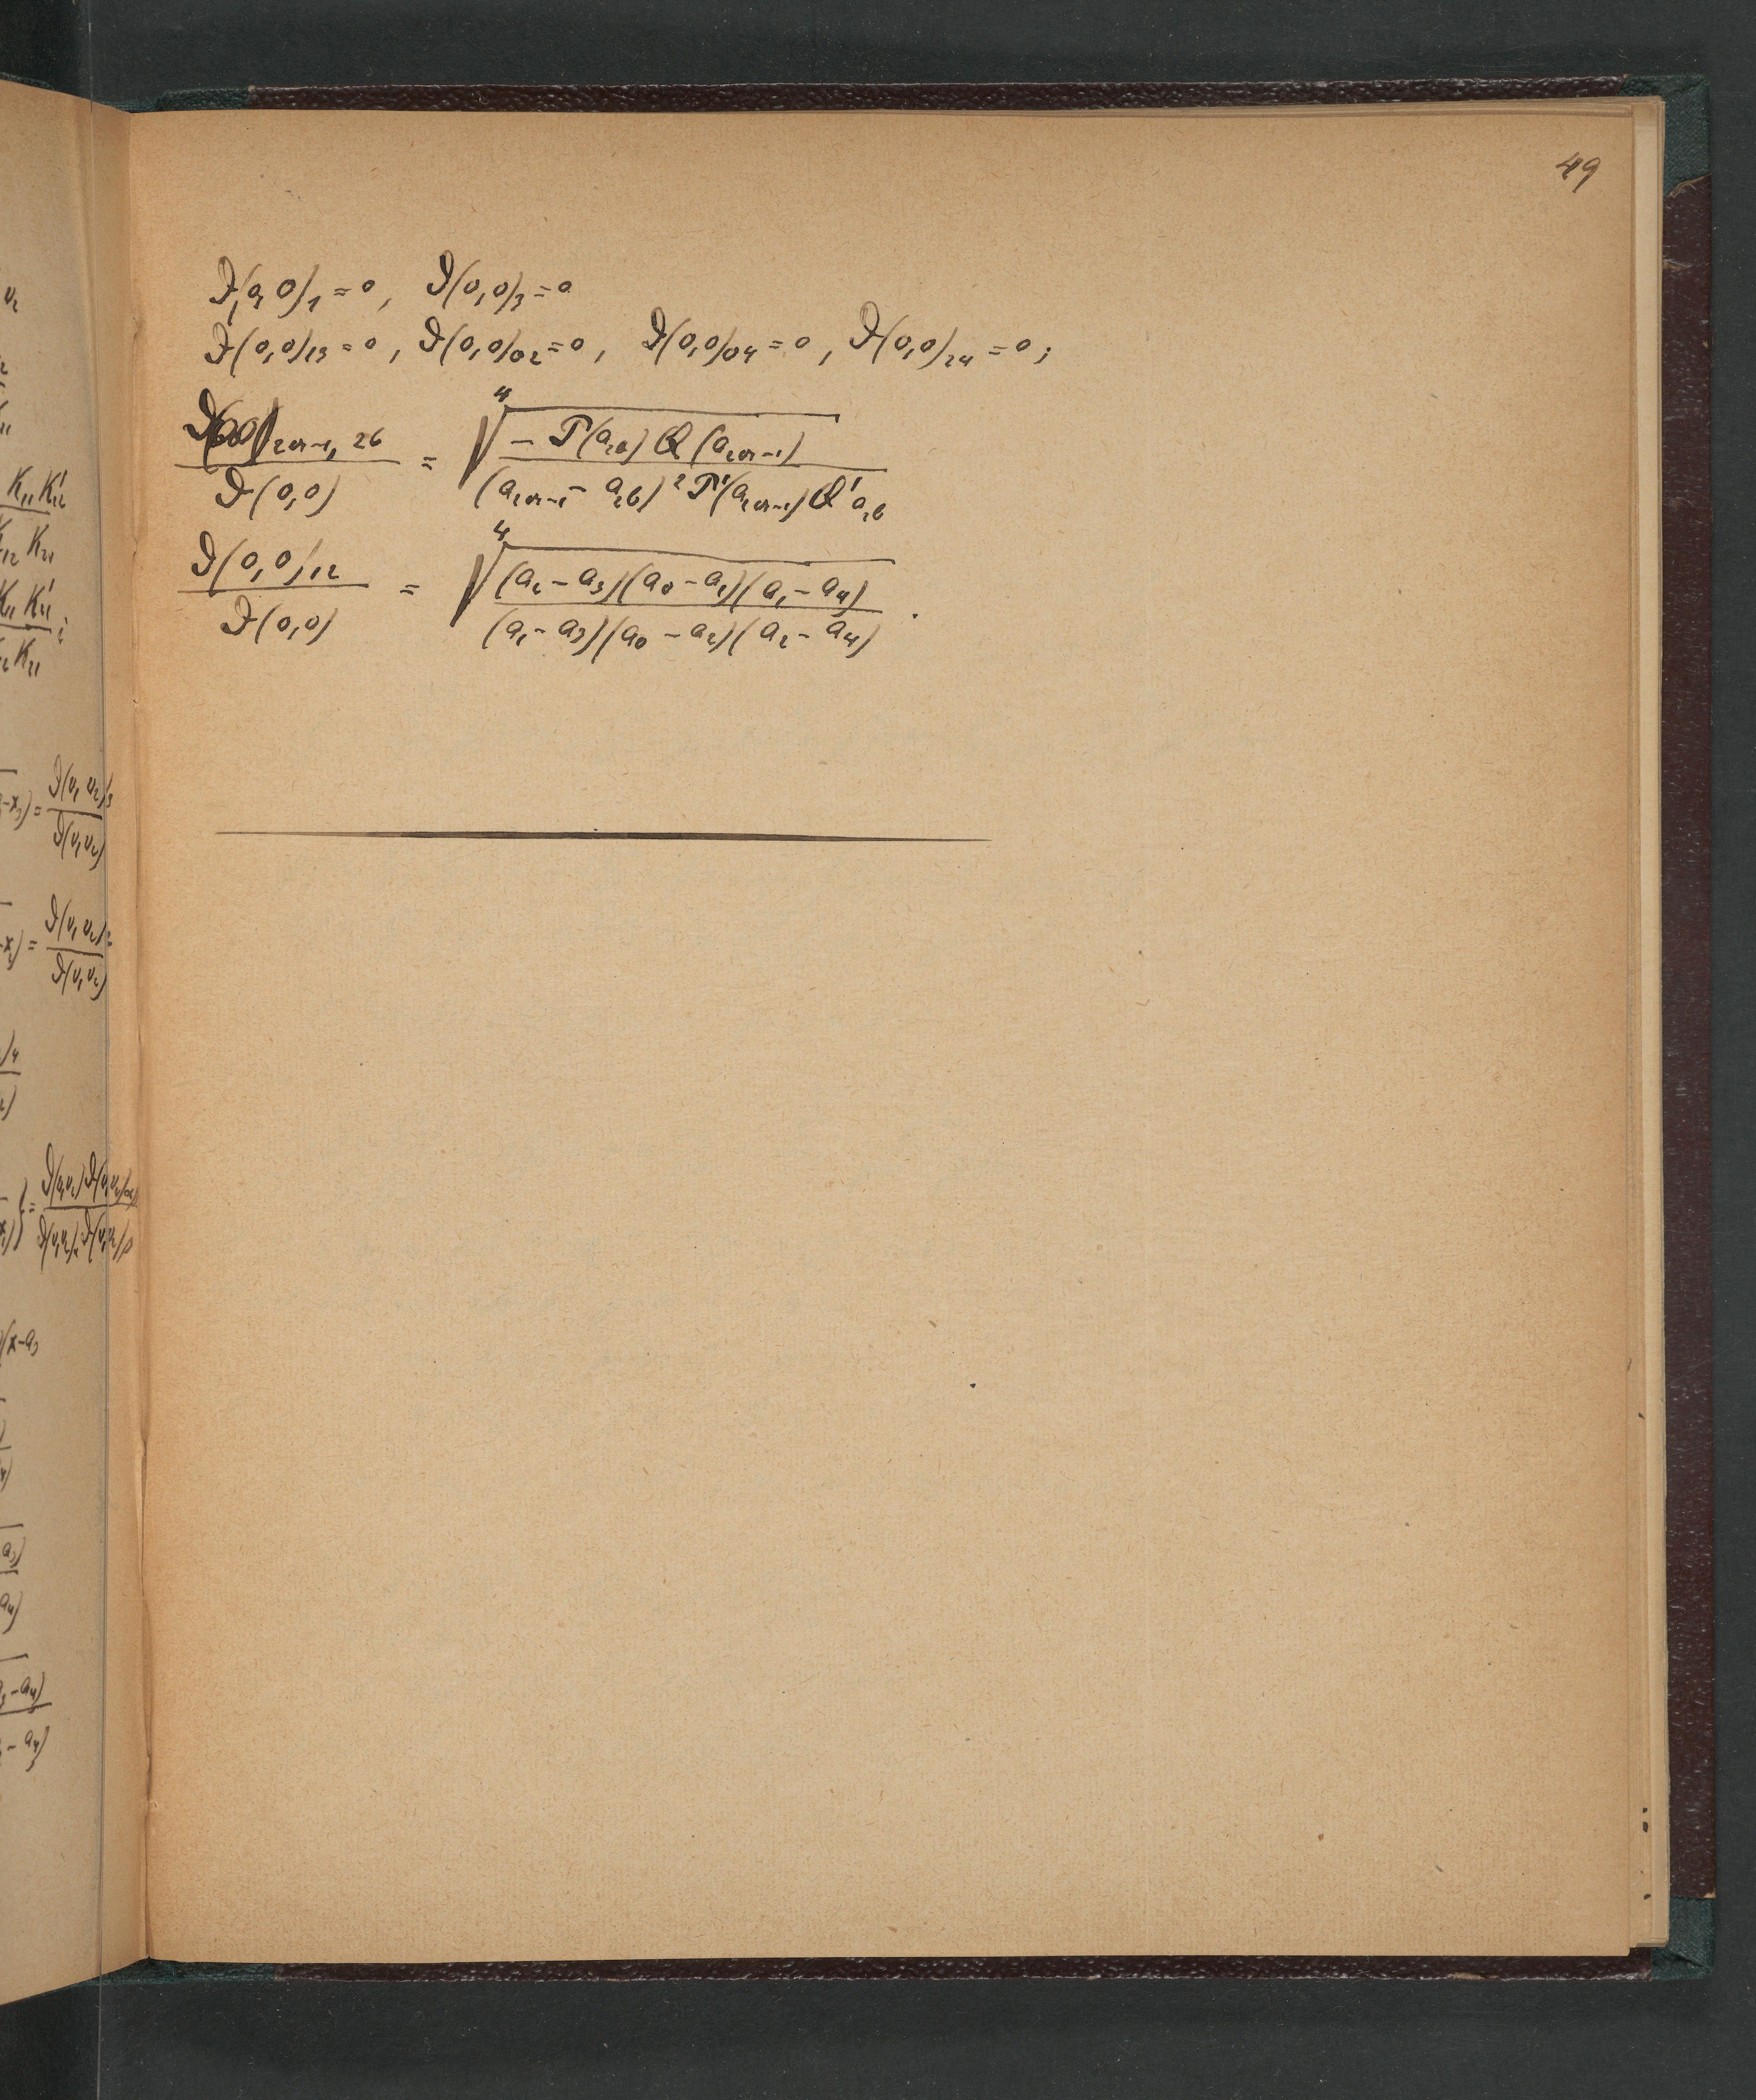 49
ϑ(0,0)₁ = 0, ϑ(0,0)₃ = 0
ϑ(0,0)₁₃ = 0, ϑ(0,0)₀₂ = 0, ϑ(0,0)₀₄ = 0, ϑ(0,0)₂₄ = 0;
ϑ(0,0)_{2α-1, 2β} / ϑ(0,0) = ∜( −P(a_{2β}) Q(a_{2α-1}) / (a_{2α-1} − a_{2β})² P'(a_{2α-1}) Q' a_{2β} )
ϑ(0,0)₁₂ / ϑ(0,0) = ∜( (a₂ − a₃)(a₀ − a₁)(a₁ − a₄) / (a₁ − a₃)(a₀ − a₂)(a₂ − a₄) ).